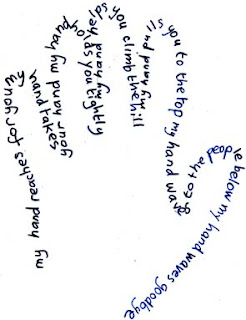 my hand reaches for yours
my hand takes
your hand my hand
holds you tightly
my hand helps you climb the hill
my hand pulls you to the top my hand waves to the people below my hand waves goodbye